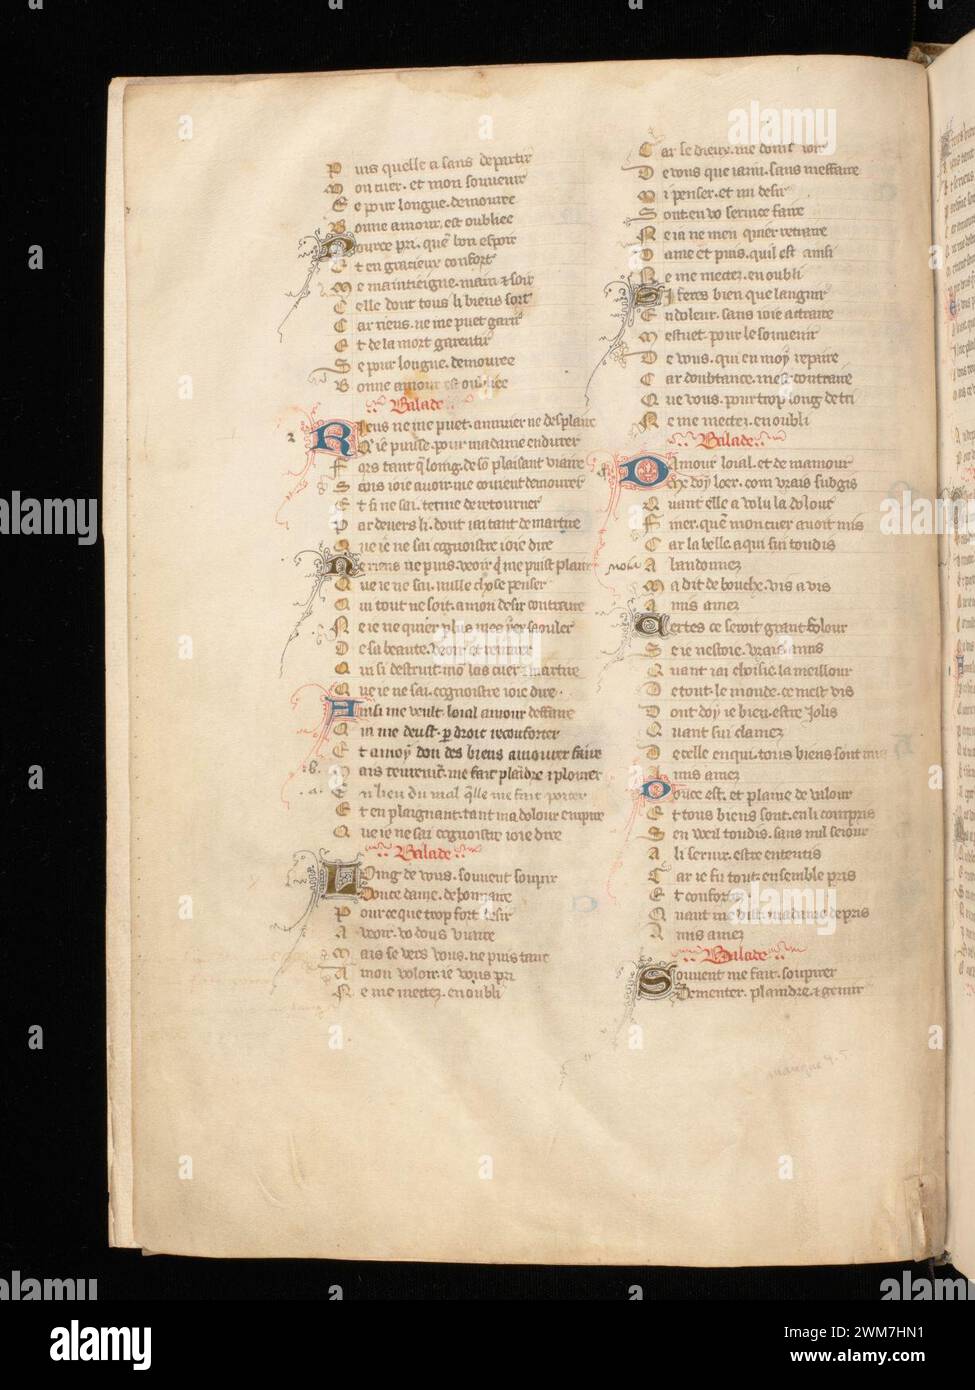 Puis quelle a sans departir
Mon cuer. et mon souvenir
Se pour longue. demouree
Bonne amour. est oubliee
Douce pri. que bon espoir
Et en gracieux confort
Me maintieigne. main & soir
Celle dont tous li biens sort
Car riens. ne me puet garir
Et de la mort garentir
Se pour longue. demouree
Bonne amour est oubliee
Balade
Riens ne me puet. annuier ne desplaire
Q ie puisse. pour madame endurer
Fors tant q long. de so plaisant viaire
Sans ioie avoir. me convient demourer
Et si ne sai. terme de retourner
Par devers li. dont iai tant de martire
Que ie ne sai. cognoistre ioie dire
Ne riens ne puis. veoir q me puist plaire
Que ie ne sai. mille chose penser
Qui tout ne soit. a mon desir contraire
Ne ie ne quier plus mes yex saouler
De sa beaute. veoir et remirer
Ainsi me veult. loial amour deffaire
Qui me deust. p droit reconforter
Et a moy don des biens amourex faire
.b. Mais couvenir. me fait plaidre & plourer
.a. En lieu du mal qlle me fait porter
Et en plaignant. tant ma dolour empire
Que ie ne sai cognoistre ioie dire
Balade
Loing de vous. souvent souspir
Douce dame. debonnaire
Pour ce que trop fort desir
A veoir. vo dous viaire
Mais se vers vous. ne puis taire
A mon voloir. ie vous pri
Ne me mettez. en oubli
Car se dieux. me doint ioir
De vous que iaim. sans meffaire
Mi penser. et mi desir
Sont en vo service faire
Ne ia ne men quier retraire
Dame et puis. quil est ainsi
Ne me mettez. en oubli
Si feres bien que languir
En doleur. sans ioie attraire
Mestuet. pour le souvenir
De vous. qui en moy repaire
Car doubtance. mest contraire
Que vous. pour trop long detri
Ne me mettez. en oubli
Balade
Damour loial. et de mamour
Me doy loer. com vrais subgis
Quant elle a volu la dolour
Car la belle. a qui sui toudis
Ma dit de bouche. vis a vis
Amis amez
Certes ce seroit grant folour
Se ie nestoie. vrais amis
Quant iai choisie. la meillour
De tout. le monde. ce mest vis
Dont doy ie bien. estre Jolis
Quant sui clamez
De celle en qui. tous biens sont mis
Amis amez
Douce est. et plaine de valour
Et tous biens sont. en li compris
Sen weil toudis. sans nul seiour
A li servir. estre ententis
Car ie fu tout. ensemble pris
Et confortez
Quant me dist. madame de pris
Amis amez
Balade
Souvent me fait. soupirer
Dementer. plaindre. & gemir
manque
alamy
Image ID: 2WM7HN1
www.alamy.com